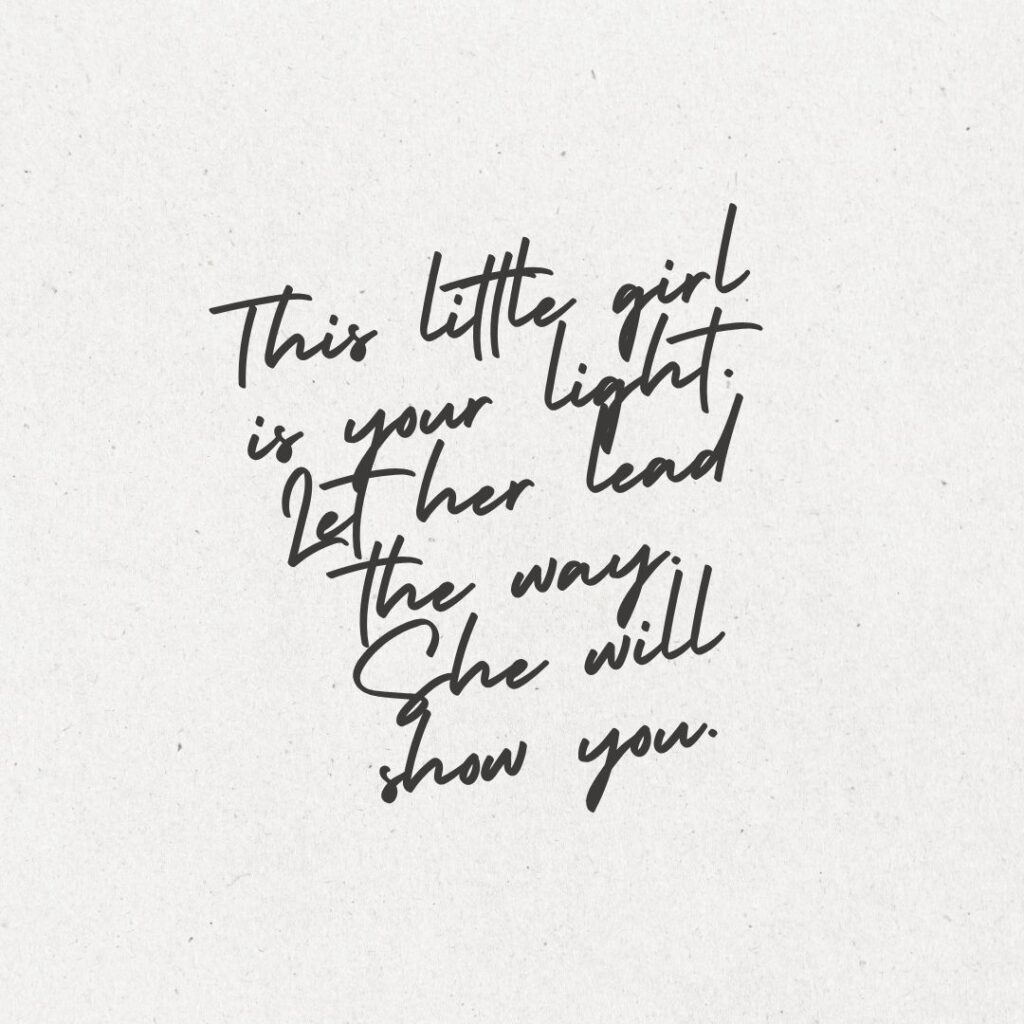 This little girl
is your light.
Let her lead
the way.
She will
show you.